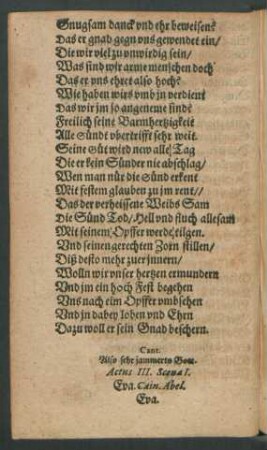 Gnugsam danck vnd ehr beweisen?
Das er gnad gegn vns gewendet ein/
Die wir viel zu vnwirdig sein/
Was sind wir arme menschen doch
Das er vns ehret also hoch?
Wie haben wirs vmb jn verdient
Das wir jm so angeneme sind?
Freilich seine Barmhertzigkeit
Alle Sünde vbertrifft sehr weit.
Seine Güt wird new alle Tag
Die er kein Sünder nie abschlag/
Wen man nür die Sünd erkent
Mit festem glauben zu jm rent//
Das der verheissene Weibs Sam
Die Sünd Tod/ Hell vnd fluch allesam
Mit seinem Opffer werde tilgen.
Vnd seinen gerechten Zorn stillen/
Diß desto mehr zuerjnnern/
Wolln wir vnser hertzen ermundern
Vnd jm ein hoch Fest begehen
Vns nach eim Opffer vmbsehen
Vnd jn dabey loben vnd Ehrn
Dazu woll er sein Gnad beschern.
Cant.
Also sehr jammerts Gott.
Actus III. Scena I.
Eva. Cain. Abel.
Eva.